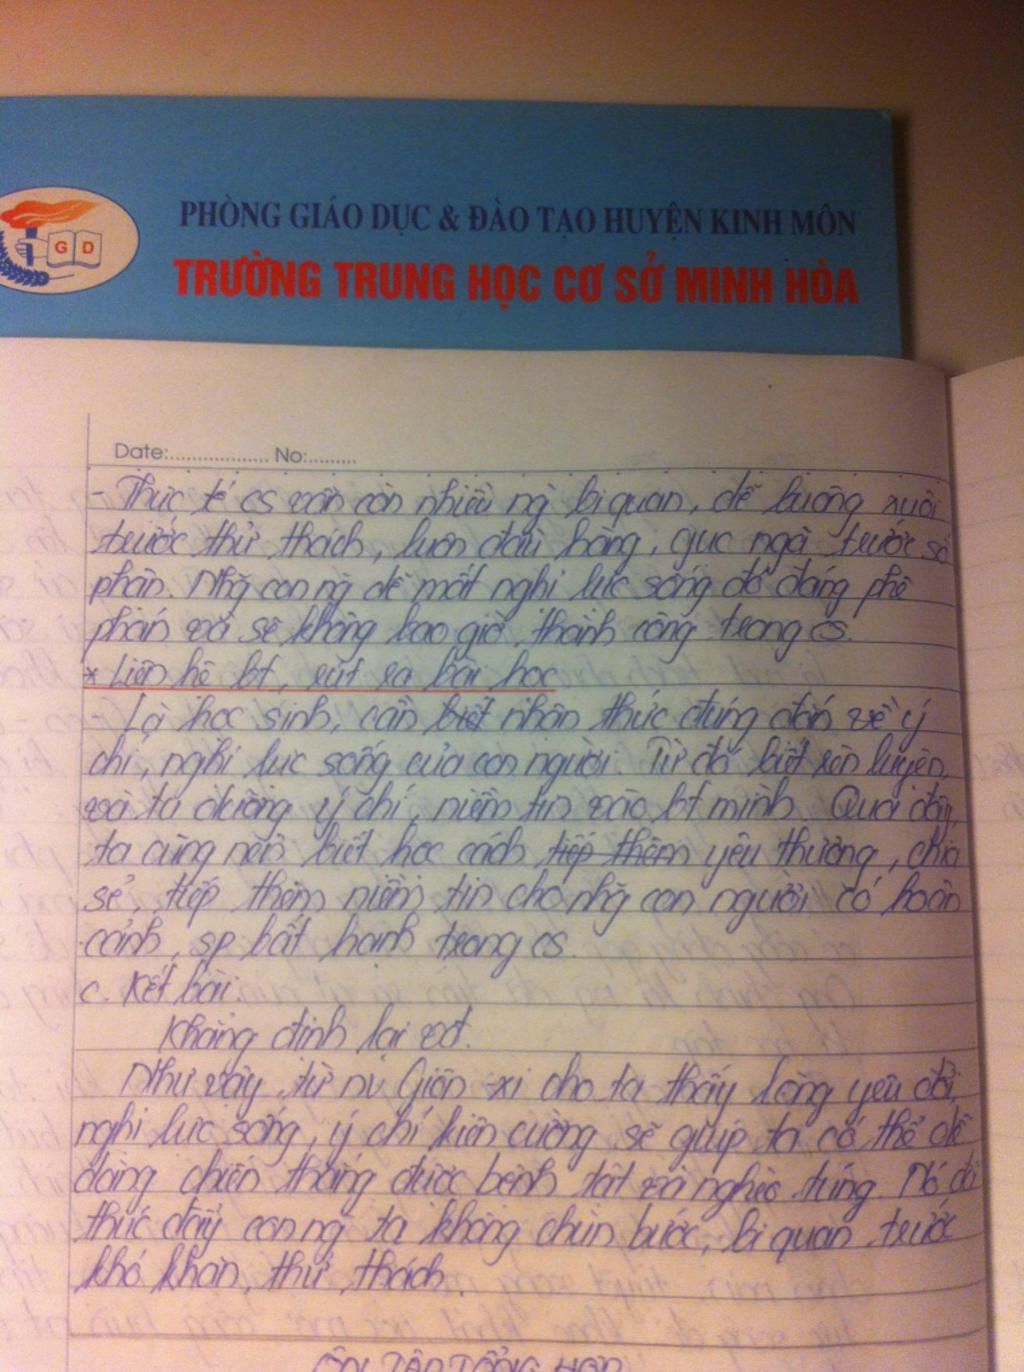 PHÒNG GIÁO DỤC & ĐÀO TẠO HUYỆN KINH MÔN
G D
TRƯỜNG TRUNG HỌC CƠ SỞ MINH HÒA
Date:................. No:.........
- Thực tế cs vẫn còn nhiều ng` bi quan, dễ buông xuôi
trước thử thách, luôn đầu hàng, gục ngã trước số
phận. Nhg con ng` dễ mất nghị lực sống đó đáng phê
phán và sẽ không bao giờ thành công trong cs.
* Liên hệ bt, rút ra bài học
- Là học sinh, cần biết nhận thức đúng đắn về ý
chí, nghị lực sống của con người. Từ đó biết rèn luyện,
và tu dưỡng ý chí, niềm tin vào bt mình. Qua đây,
ta cũng nên biết học cách tiếp thêm yêu thương, chia
sẻ, tiếp thêm niềm tin cho nhg con người có hoàn
cảnh, sp bất hạnh trong cs.
c. Kết bài:
Khẳng định lại vđ.
Như vậy, từ nv Giôn-xi cho ta thấy lòng yêu đời,
nghị lực sống, ý chí kiên cường sẽ giúp ta có thể dễ
dàng chiến thắng được bệnh tật và nghèo túng. Nó đã
thúc đẩy con ng` ta không chùn bước, bi quan trước
khó khăn, thử thách.
ÔN TẬP TỔNG HỢP